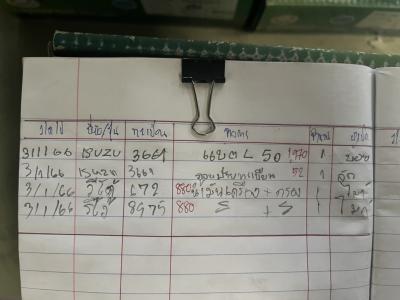 ว/ด/ป ยี่ห้อ/รุ่น ทะเบียน รายการ จำนวน
3/1/66 ISUZU 3669 แบต L 50 1970 1
3/1/66 ISUZU 3669 52 1
3/1/66 วีโก้ 172 880 น้ำมันเครื่อง + กรอง 1 ไมค์
3/1/66 วีโก้ 8975 880 S + S 1 ไมค์